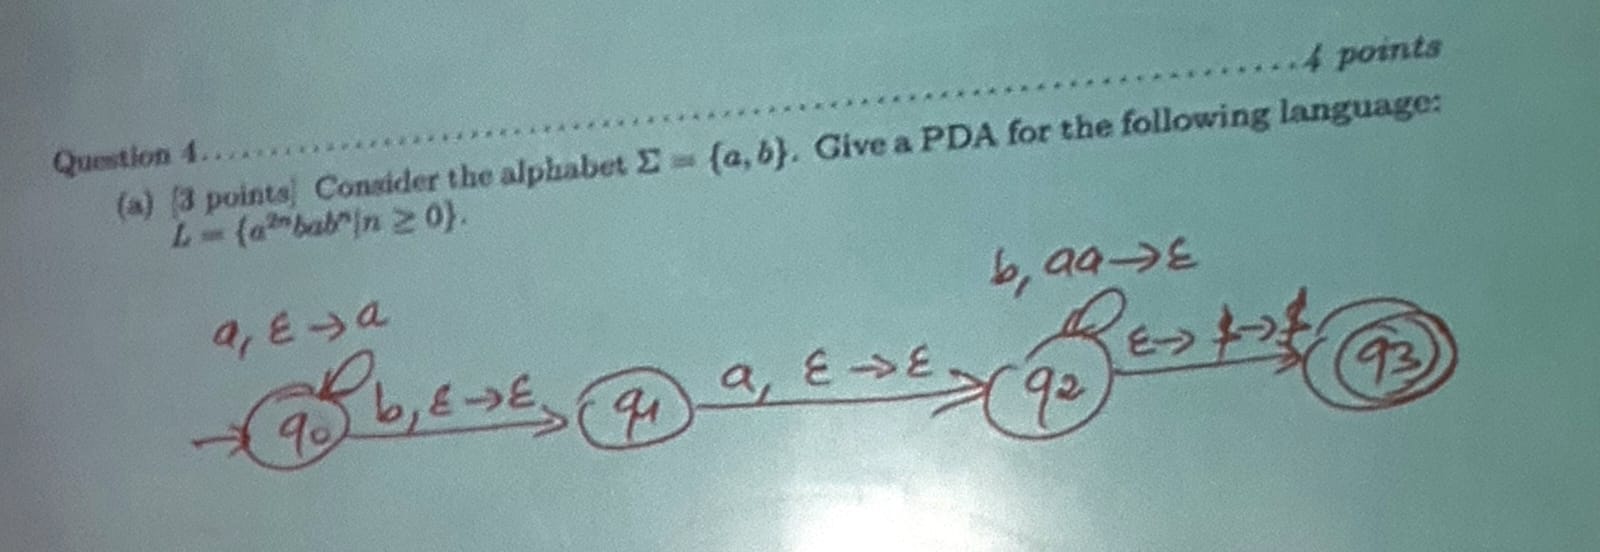 Question 4........................................4 points
(a) [3 points] Consider the alphabet Σ = {a, b}. Give a PDA for the following language:
L = {a²ⁿbabⁿ|n ≥ 0}.
b, aa→ε
a, ε→a
b, ε→ε
a, ε→ε
ε→ $→$
q0
q1
q2
q3